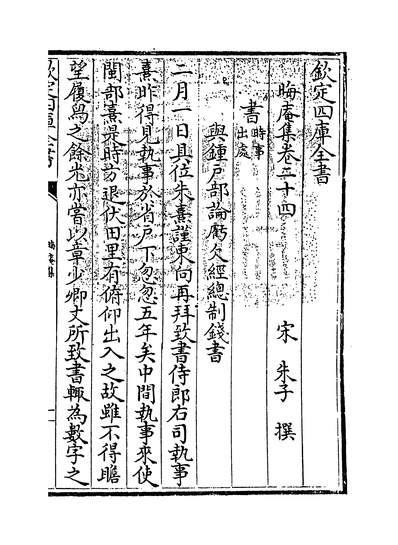 欽定四庫全書
晦庵集卷二十四
宋 朱子 撰
書時事出處
與鍾戸部論虧欠經總制錢書
二月一日具位朱熹謹東向再拜致書侍郎右司執事
熹昨得見執事於省戸下怱怱五年矣中間執事來使
閩部熹是時方退伏田里有俯仰出入之故雖不得瞻
望履舄之餘光亦嘗以章少卿丈所致書輙為數字之
欽定四庫全書
晦庵集
一